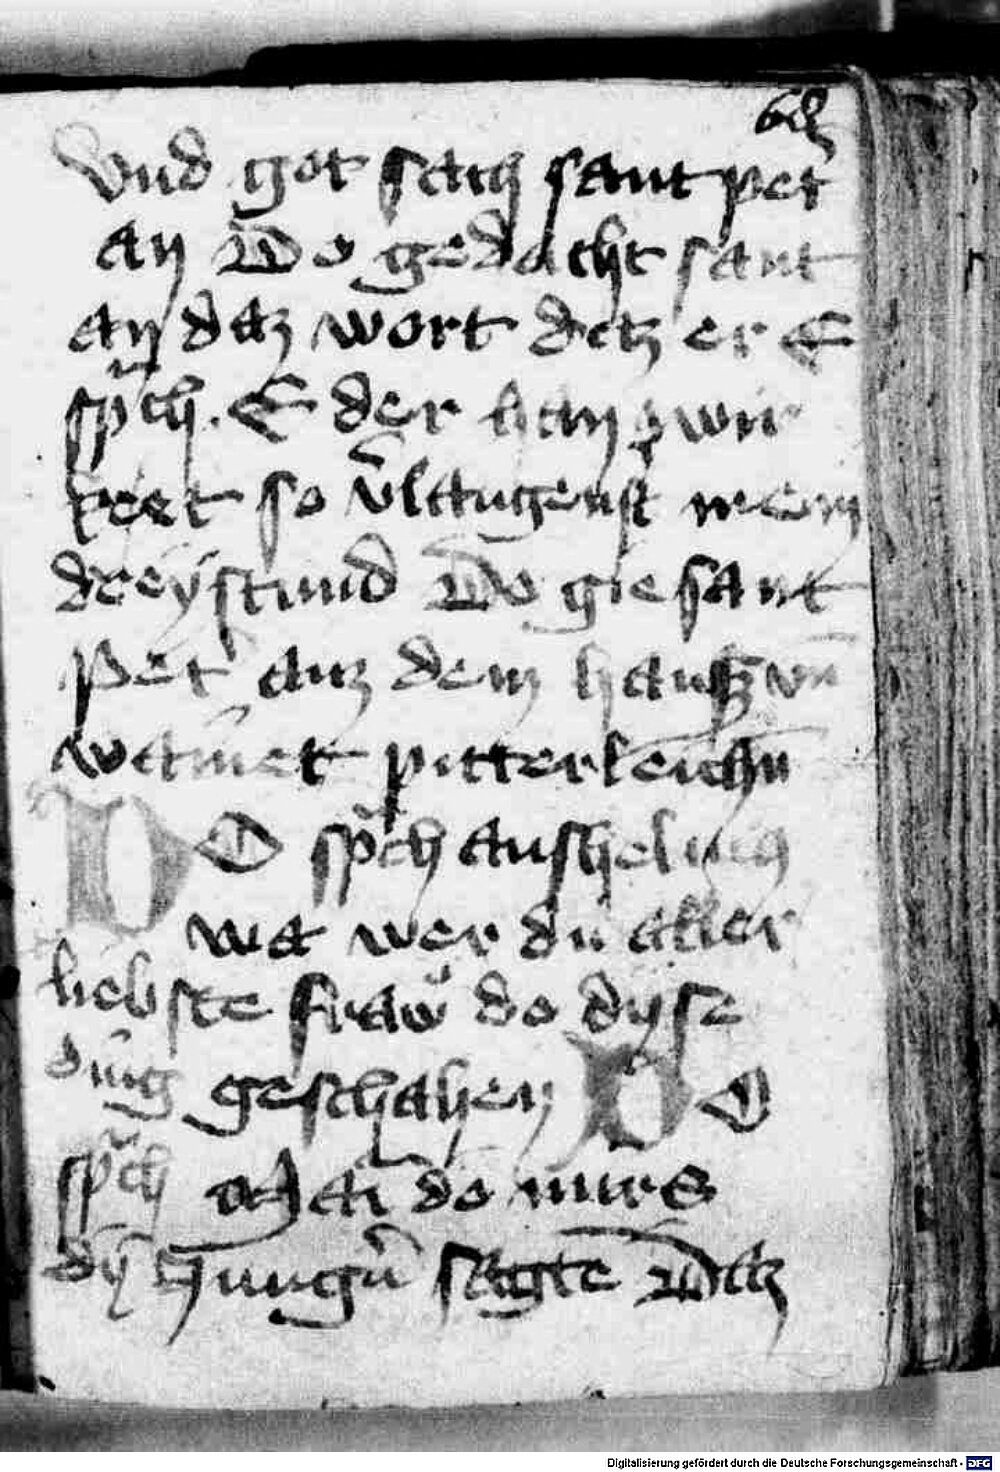 68
Vnd got sach sant pet̄
an Do gedacht sant
an daz wort daz er E
sp̄ch. E der han zwir
kret so v̄laugenst mein
dreÿstund Do gie sant
Pet̄ auz dem hausz vn̄
wainet pitterleichn̄
DO sp̄ch anshelmus
wa wer du aller
liebste fraw do dyse
ding geschahen DO
sp̄ch Maria do mirs
dÿ Jungn̄ sagte Daz
Digitalisierung gefördert durch die Deutsche Forschungsgemeinschaft - DFG